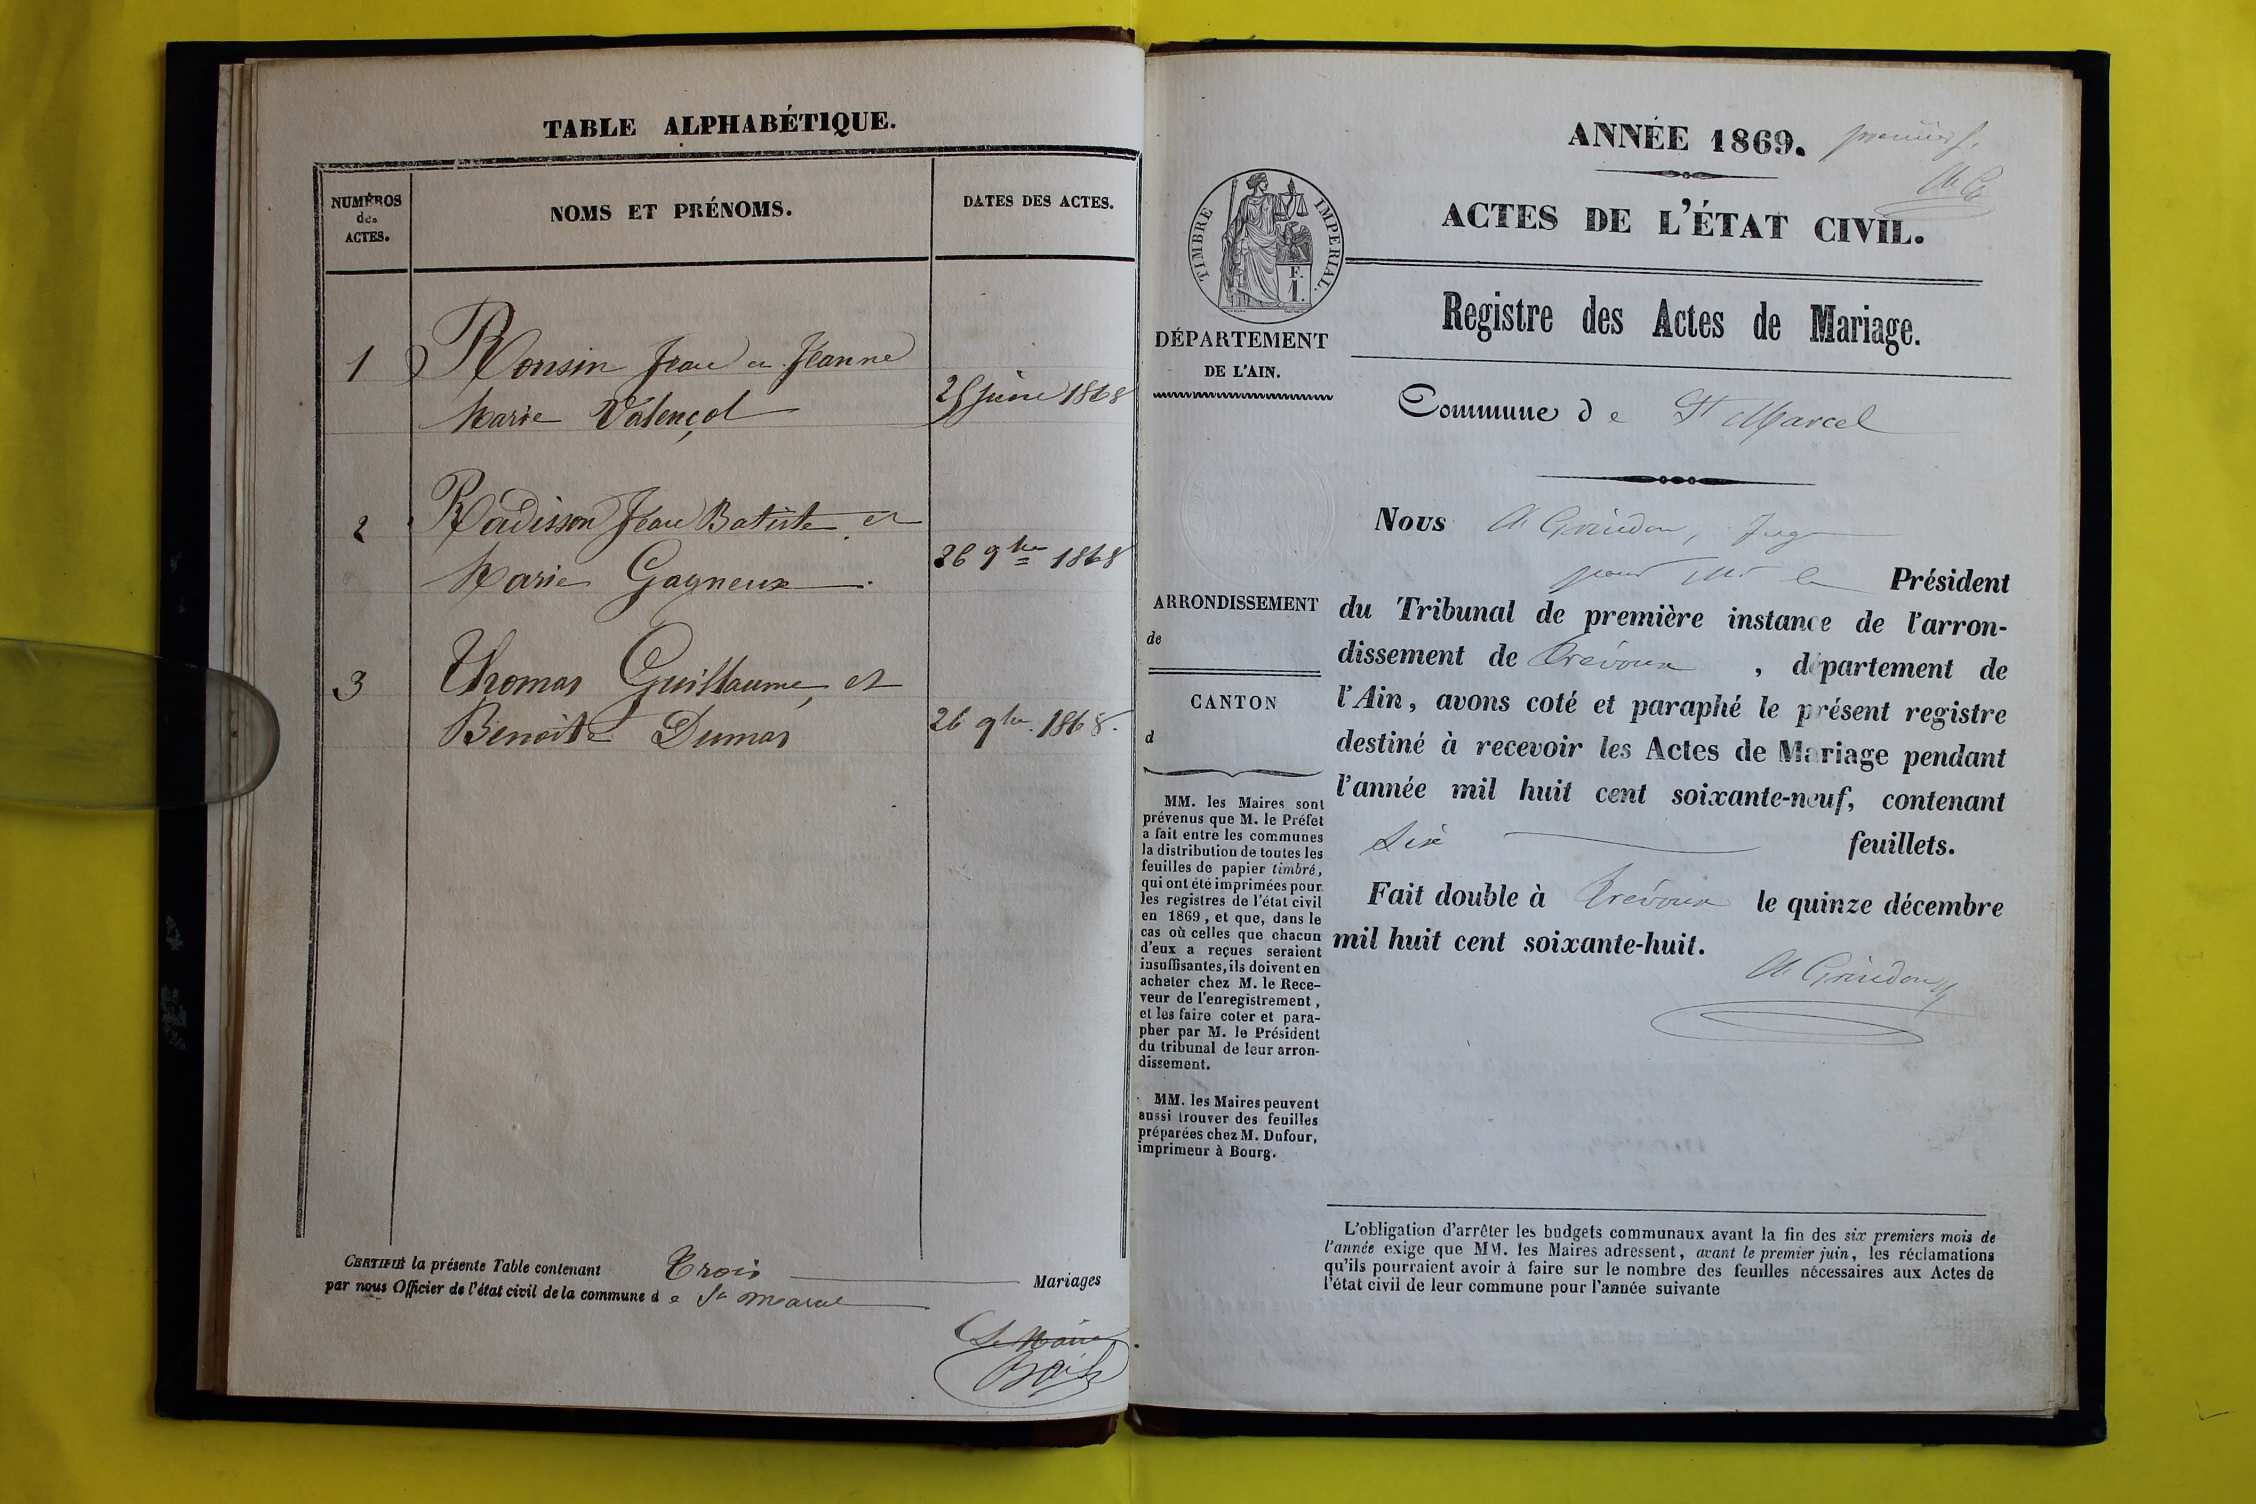 TABLE ALPHABÉTIQUE.
NUMÉROS
des
ACTES.
NOMS ET PRÉNOMS.
DATES DES ACTES.
1
Ronsin Jean et Jeanne
Marie Valençot
25 juin 1868
2
Radisson Jean Batiste et
Marie Gagneux
26 9bre 1868
3
Thomas Guillaume, et
Benoite Dumas
26 9bre 1868.
CERTIFIÉ la présente Table contenant Trois Mariages
par nous Officier de l'état civil de la commune d e St Marcel
Le Maire
ANNÉE 1869. premier f.
ACTES DE L'ÉTAT CIVIL.
TIMBRE IMPERIAL.
F.
1.
Registre des Actes de Mariage.
DÉPARTEMENT
DE L'AIN.
Commune d e St Marcel
Nous A Grindon, Juge
pour Mr le Président
du Tribunal de première instance de l'arron-
dissement de Trévoux, département de
l'Ain, avons coté et paraphé le présent registre
destiné à recevoir les Actes de Mariage pendant
l'année mil huit cent soixante-neuf, contenant
Six feuillets.
Fait double à Trévoux le quinze décembre
mil huit cent soixante-huit.
A Grindon
ARRONDISSEMENT
de
CANTON
d
MM. les Maires sont
prévenus que M. le Préfet
a fait entre les communes
la distribution de toutes les
feuilles de papier timbré,
qui ont été imprimées pour
les registres de l'état civil
en 1869, et que, dans le
cas où celles que chacun
d'eux a reçues seraient
insuffisantes, ils doivent en
acheter chez M. le Rece-
veur de l'enregistrement,
et les faire coter et para-
pher par M. le Président
du tribunal de leur arron-
dissement.
MM. les Maires peuvent
aussi trouver des feuilles
préparées chez M. Dufour,
imprimeur à Bourg.
L'obligation d'arrêter les budgets communaux avant la fin des six premiers mois de
l'année exige que MM. les Maires adressent, avant le premier juin, les réclamations
qu'ils pourraient avoir à faire sur le nombre des feuilles nécessaires aux Actes de
l'état civil de leur commune pour l'année suivante